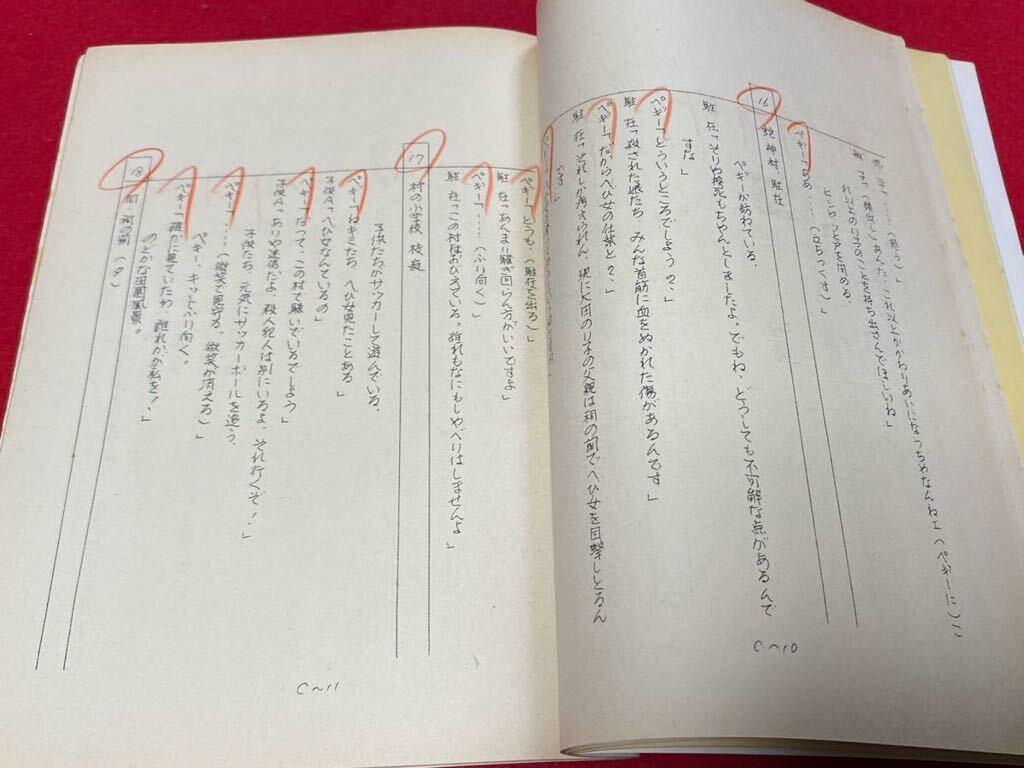 敏子「(顔出し)あんた、これ以上かかわりあいになっちゃなんねェ(ペギーに)こ
れ以上のり子のことを持ち出さんでほしいね」
ピシャっとドアを閉める。
ペギー「ああ……(立ちつくす)」
16 蛇神村、駐在
ペギーが訪ねている。
駐在「そりゃ検死もちゃんとしましたよ。でもね、どうしても不可解な点があるんで
すな」
ペギー「どういうところでしょう?」
駐在「殺された娘たち、みんな首筋に血をぬかれた傷があるんです」
ペギー「だからへび女の仕業と?」
駐在「それしか考えられん、現に大田のり子の父親は祠の前でへび女を目撃しとるん
です」
C〜10
ペギー「どうも」(駐在を出る)
駐在「あんまり騒ぎ回らん方がいいですよ」
ペギー「……(ふり向く)」
駐在「この村はおびえている。誰れもなにもしゃべりはしませんよ」
17 村の小学校 校庭
子供たちがサッカーして遊んでいる。
ペギー「ねキミたち、へび女見たことある」
子供A「へび女なんているの」
ペギー「だって、この村で騒いでいるでしょう」
子供A「ありゃ迷信だよ、殺人犯人は別にいるよ、それ行くぞ!」
子供たち、元気にサッカーボールを追う。
ペギー「……(微笑で見守る、微笑が消える)」
ペギー、キッとふり向く。
ペギー「確かに見ていたわ、誰れかが私を!」
のどかな田園風景。
18 同 祠の前(夕)
C〜11